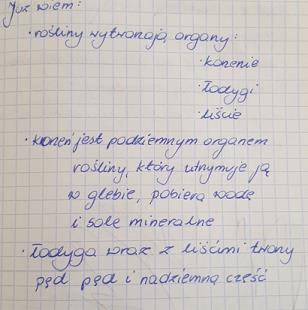 Już wiem:
· rośliny wytwarzają organy:
· korzenie
· łodygi
· liście
· korzeń jest podziemnym organem
rośliny, który utrzymuje ją
w glebie, pobiera wodę
i sole mineralne
· łodyga wraz z liśćmi tworzy
pęd pęd i nadziemną część